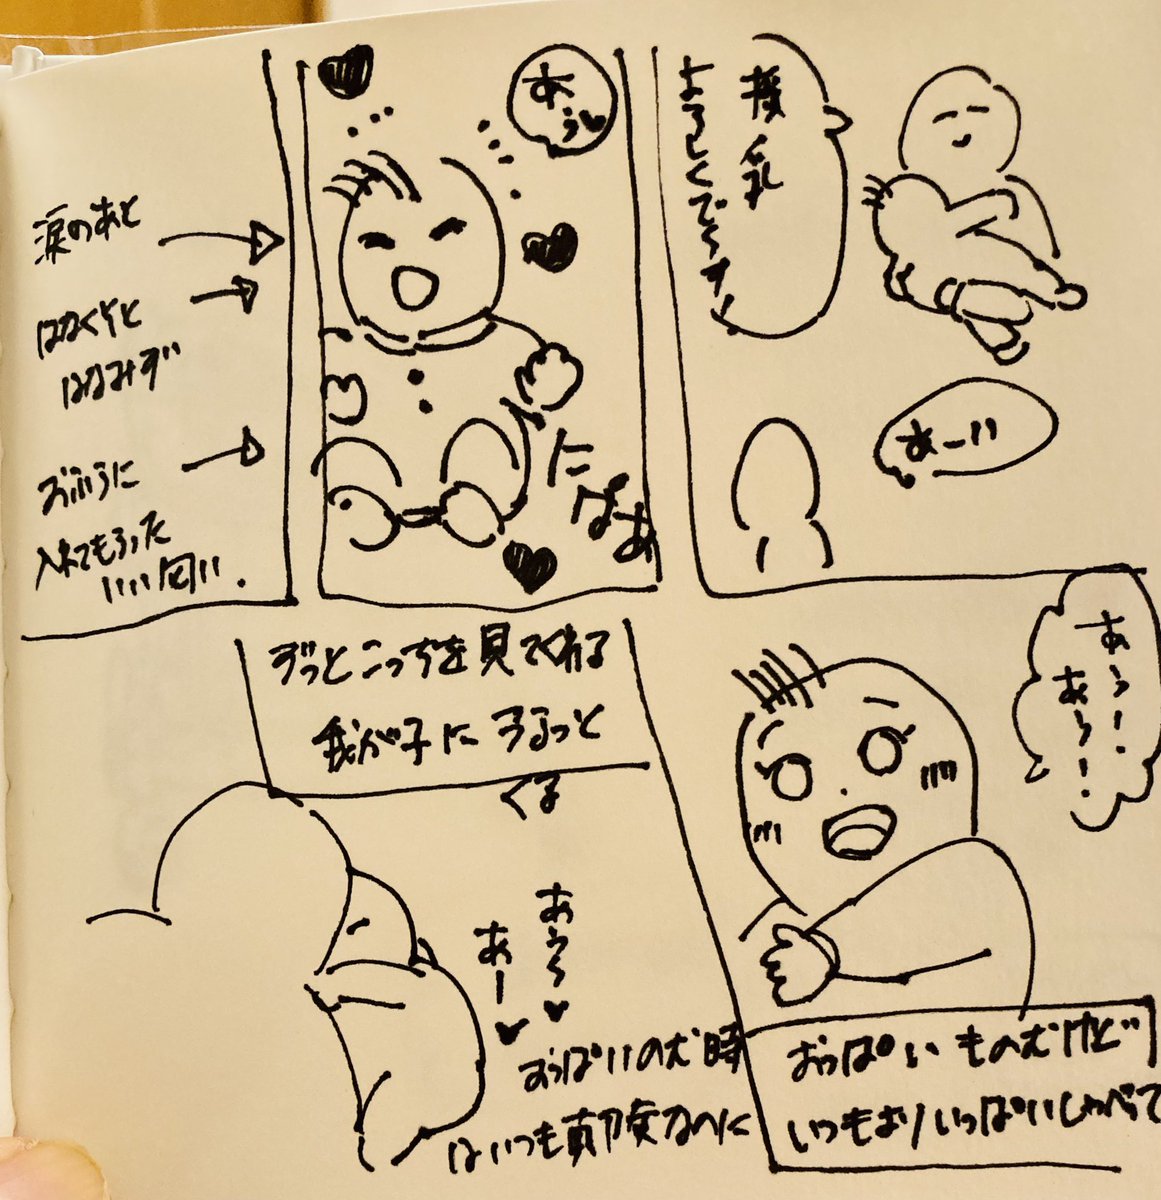 授乳
よろしくで〜す!
あーい
あぅ
にぱあ
涙のあと
はなくそと
はなみず
おふろに
入れてもらった
いい匂い.
あぅー!
あぅー!
おっぱいものむけど
いつもよりいっぱいしゃべって
ずっとこっちを見てくれる
我が子にうるっと
くる
あぅ〜♥
あー♥
おっぱいのむ時
はいつも真顔なのに